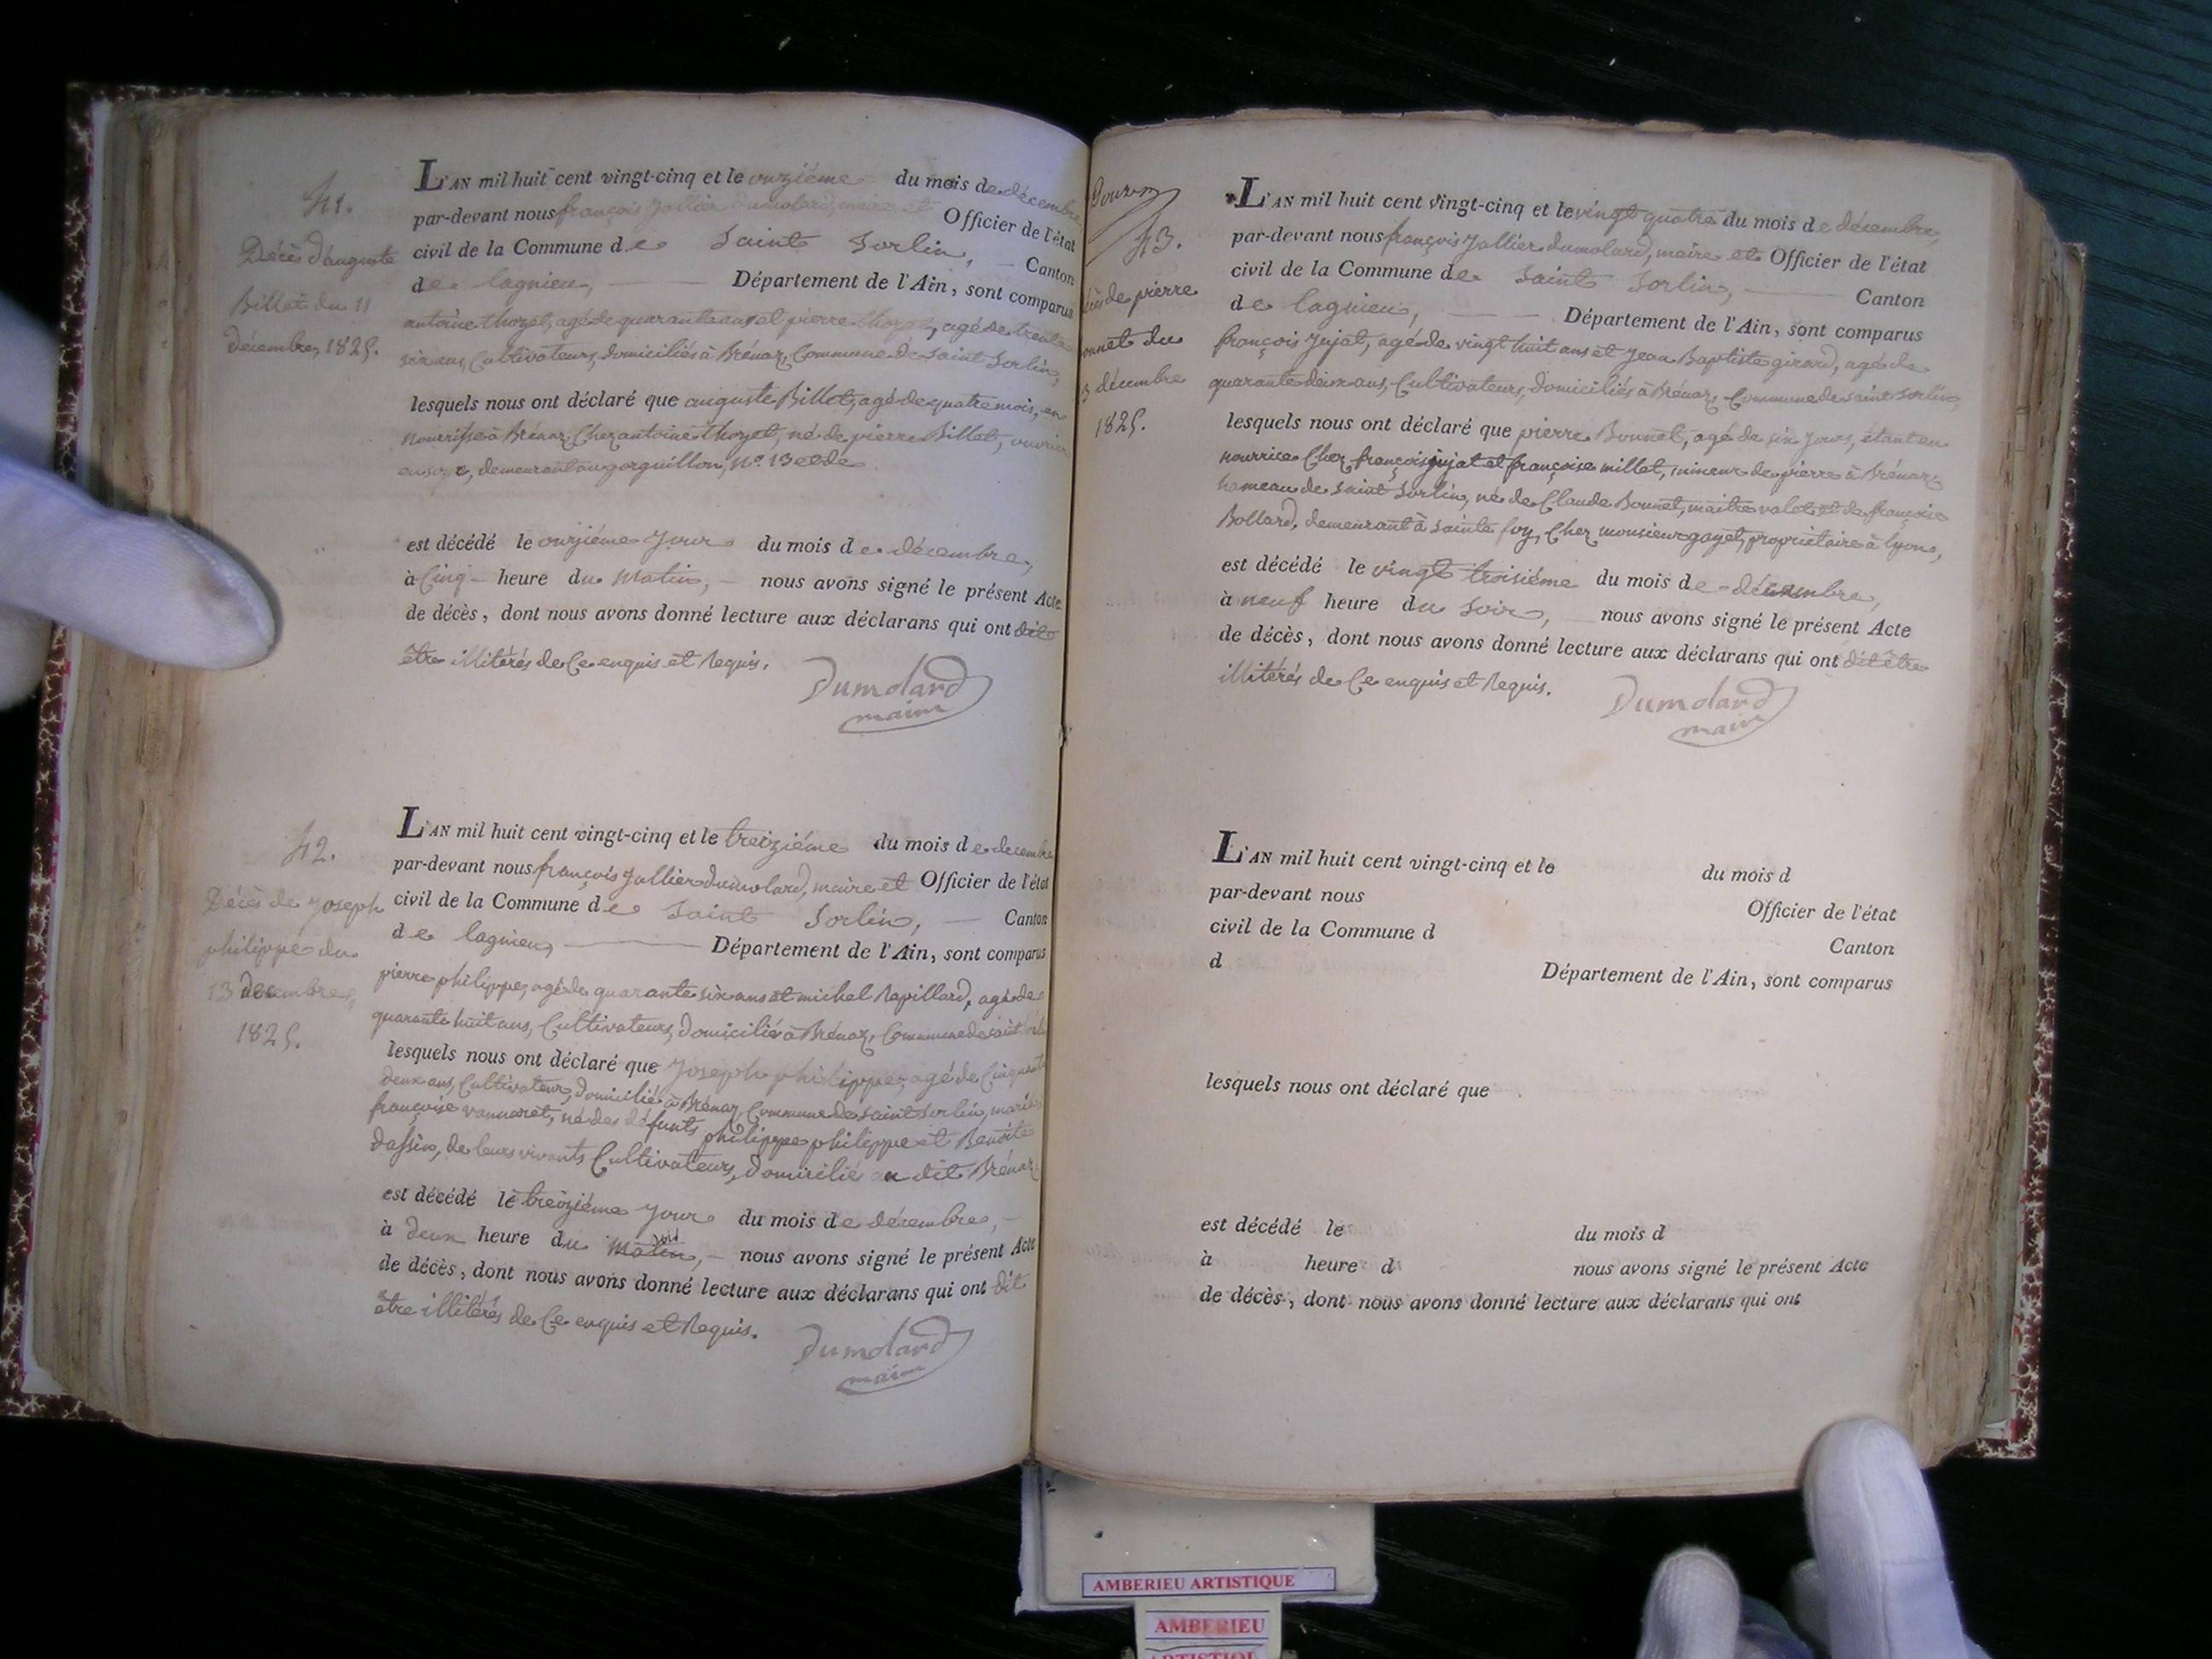 41.
Décès d'auguste
Billet du 11
décembre, 1825.
L'AN mil huit cent vingt-cinq et le onziéme du mois de décembre
par-devant nous françois Jallier dumolard, maire et Officier de l'état
civil de la Commune de Saint Sorlin, Canton
de lagnieu, Département de l'Ain, sont comparus
antoine thozet, agé de quarante ans et pierre thozet, agé de trente
six ans, Cultivateurs, domiciliés à Brénaz, Commune de Saint Sorlin,
lesquels nous ont déclaré que auguste Billet, agé de quatre mois, en
nourrisse à Brénaz Chez antoine thozet, né de pierre Billet, ouvrier
en demeurant au gorguillon, N.º 13
est décédé le onziéme Jour du mois de décembre,
à Cinq heure du Matin, nous avons signé le présent Acte
de décès, dont nous avons donné lecture aux déclarans qui ont dit
être illitérés de Ce enquis et Requis.
Dumolard
maire
42.
Décès de Joseph
philippe du
13 décembre,
1825.
L'AN mil huit cent vingt-cinq et le treiziéme du mois de décembre
par-devant nous françois Jallier dumolard, maire et Officier de l'état
civil de la Commune de Saint Sorlin, Canton
de lagnieu, Département de l'Ain, sont comparus
pierre philippe, agé de quarante six ans et michel Ravillard, agé de
quarante huit ans, Cultivateurs, domiciliés à Brénaz, Commune de saint
lesquels nous ont déclaré que Joseph philippe, agé de Cinquante
deux ans, Cultivateur, domicilié à Brénaz, Commune de saint Sorlin, marié
françoise vannaret, né des défunts philippe philippe et Benoite
dassin, de leurs vivants Cultivateurs, domiciliés au dit Brénaz
est décédé le treiziéme Jour du mois de décembre,
à deux heure du matin, nous avons signé le présent Acte
de décès, dont nous avons donné lecture aux déclarans qui ont dit
être illitérés de Ce enquis et Requis.
Dumolard
maire
43.
de pierre
onnet du
3 décembre
1825.
L'AN mil huit cent vingt-cinq et le vingt quatre du mois de décembre,
par-devant nous françois Jallier dumolard, maire et Officier de l'état
civil de la Commune de Saint Sorlin, Canton
de lagnieu, Département de l'Ain, sont comparus
françois Jujat, agé de vingt huit ans et Jean Baptiste girard, agé de
quarante deux ans, Cultivateurs, domiciliés à Brénaz, Commune de saint Sorlin,
lesquels nous ont déclaré que pierre Bonnet, agé de six Jours, étant en
nourrice Chez françois jujat et françoise millet, mineur de pierre à Brénaz
hameau de saint Sorlin, né de Claude Bonnet, maitre valet et de françoise
Bollard, demeurant à sainte foy, Chez monsieur gayet, propriétaire à lyon,
est décédé le vingt troisiéme du mois de décembre,
à neuf heure du Soir, nous avons signé le présent Acte
de décès, dont nous avons donné lecture aux déclarans qui ont dit être
illitérés de Ce enquis et Requis.
Dumolard
maire
L'AN mil huit cent vingt-cinq et le du mois d
par-devant nous Officier de l'état
civil de la Commune d Canton
d Département de l'Ain, sont comparus
lesquels nous ont déclaré que
est décédé le du mois d
à heure d nous avons signé le présent Acte
de décès, dont nous avons donné lecture aux déclarans qui ont
AMBERIEU ARTISTIQUE
AMBERIEU
ARTISTIQUE